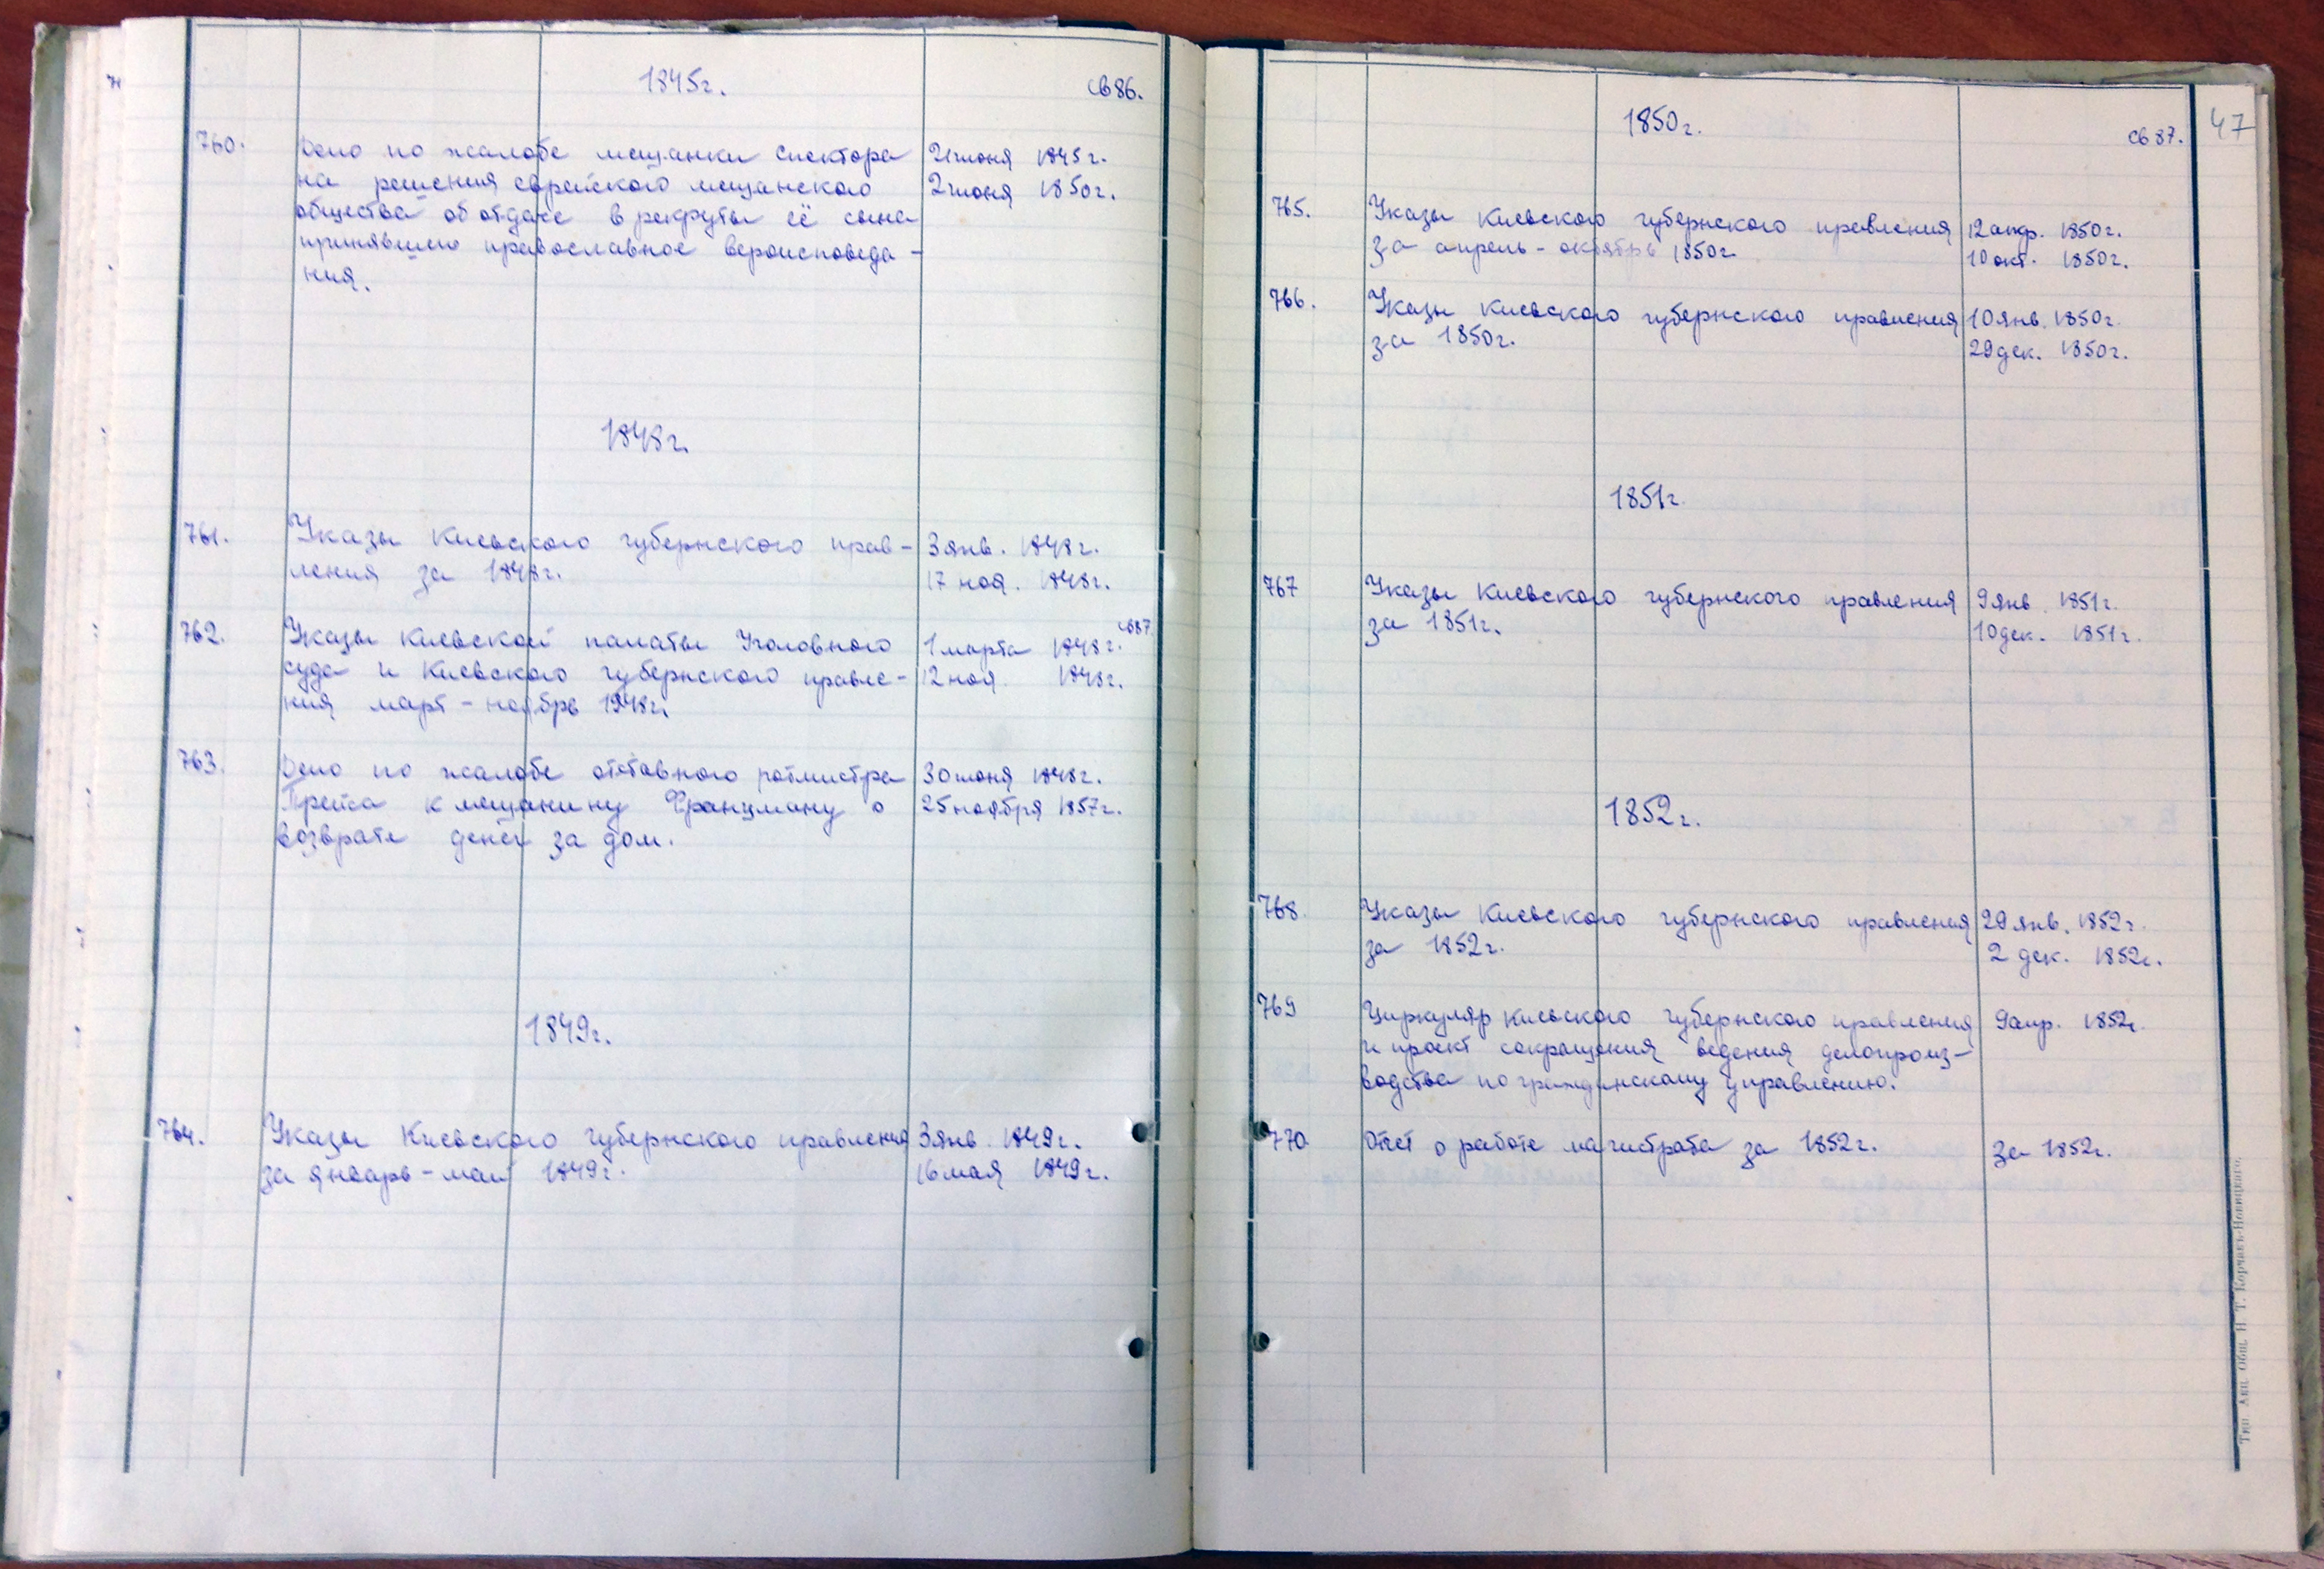 1845г.
св 86.
760.
Дело по жалобе мещанки Спектора
на решения еврейского мещанского
общества об отдаче в рекруты её сына
принявшего православное вероисповеда-
ния.
2 июня 1850г.
1848г.
761.
Указы Киевского губернского прав-
ления за 1848г.
3 янв. 1848г.
17 ноя. 1848г.
762.
Указы Киевской палаты Уголовного
суда и Киевского губернского правле-
ния март - ноябрь 1848г.
св87
1 марта 1848г.
12 ноя. 1848г.
763.
Дело по жалобе отставного ротмистра
к мещанину Францману о
возврате денег за дом.
30 июня 1848г.
25 ноября 1857г.
1849г.
764.
Указы Киевского губернского правления
за январь - май 1849г.
3 янв. 1849г.
16 мая 1849г.
47
1850г.
св 87.
765.
Указы Киевского губернского правления
за апрель - октябрь 1850г.
12 апр. 1850г.
10 окт. 1850г.
766.
Указы Киевского губернского правления
за 1850г.
10 янв. 1850г.
29 дек. 1850г.
1851г.
767
Указы Киевского губернского правления
за 1851г.
9 янв. 1851г.
10 дек. 1851г.
1852г.
768.
Указы Киевского губернского правления
за 1852г.
29 янв. 1852г.
2 дек. 1852г.
769
Циркуляр Киевского губернского правления
и проект сокращения ведения делопроиз-
водства по гражданскому управлению.
9 апр. 1852г.
770
Отчет о работе магистрата за 1852г.
за 1852г.
Тип. Акц. Общ. Н. Т. Корчакъ-Новицкаго.